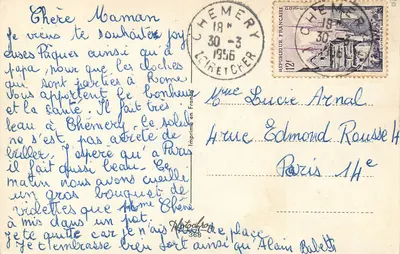 Chère Maman
Je viens te souhaiter joy
euses Pâques ainsi qu'à
papa, pour que les cloches
qui sont parties à Rome
vous apportent le bonheur
et la santé. Il fait très
beau à Chémery, le soleil
ne s'est pas arrêté de
briller. J'espère qu'à Paris
il fait aussi beau. Ce
matin nous avons cueilli
un gros bouquet de
violettes que Mme Chéré
à mis dans un pot.
je te quitte car je n'ais plus de place
Je t'embrasse bien fort ainsi qu'Alain Babeth
CHEMERY
18H
30-3
1956
LOIR ET CHER
CHEMERY
18H
30
12F
Imprimé en France
Mme Lucie Arnal
4 rue Edmond Rousse 4
Paris 14e